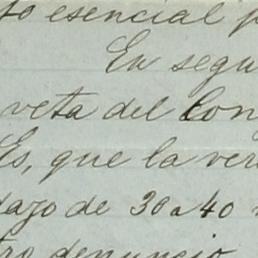 to esencial p
En segu
veta del Con
Es, que la ver
dazo de 30 a 40
tro denuncio